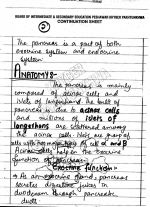 BOARD OF INTERMEDIATE & SECONDARY EDUCATION PESHAWAR KHYBER PAKHTUNKHWA
CONTINUATION SHEET
2
The pancreas is a part of both
exocrine system and endocrine
system
ANATOMY:-
The pancreas is mainly
composed of acinar cells and
islets of langerhans. The bulk of
pancreas is due to acinar cells
and millions of islets of
langerhans are scattered among
the acinar cells.
cells with
cells help in the exocrine
function of pancreas.
Exocrine function:-
As an exocrine gland, pancreas
secretes digestive juices in
duodenum through pancreatic
duct.